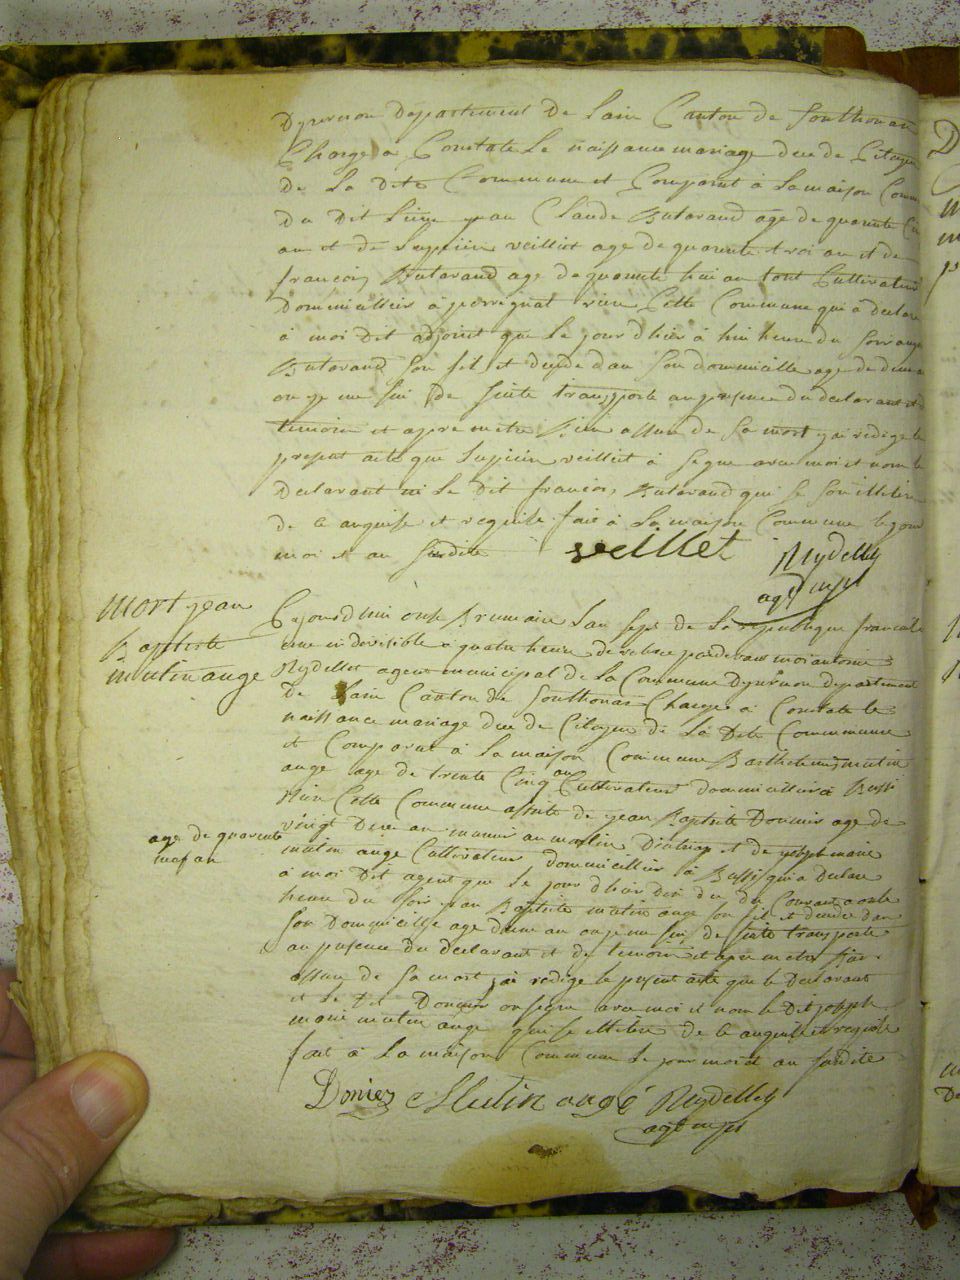 Dyzernon Département De Lain Canton de Southonax
Charge a Constate Le naissance mariage de ce de Citoyen
De La Dite Commune et Comparut à La maison Comm
Du Dit Lieu jean Claude Butavand age de quarente Cin
an et de Lupicin veilliet age de quarente troi an et de
francois Butavand age de quarente hui an tout Cultivateur
Domicillier à perrignat rière Cette Commune qui a declare
à moi Dit adjoint que Le jour d hier à hui heure du soir
Butavand Son fil et decede dan Son domicille age de deux an
on je me sui de suite transporte au presence du declarant et
temoin et apre metre bien assure de Sa mort jai redige le
present acte que Lupicin veilliet à Segne avec moi et nom le
Declarant ni Le Dit francois Butavand qui se son illitere
de ce anquise et requise fait à La maison Commune le jour
moi et an susdite
veillet Rydellet
agt mpl
mort jean
Baptiste
mutin ange
Cejourdhui onse Brumaire Lan Sept de La republique francaise
une indivisible à quatre heure de relevee pardevans moi antoine
Rydellet agent municipal de La Commune Dyzernon departement
De Lain Canton de Southonax Charge a Constate le
naissance mariage dece de Citoyen de La Dite Commune
et Comparut à La maison Commune Barthelemi mutin
ange age de trente Cinq an Cultivateur domicillier à Bussi
rière Cette Commune assiste de jean Baptiste Donier age de
vingt Deux an et de joseph marie
age de quarente
neuf an
mutin ange Cultivateur domicillier à Bussi qui a Declare
à moi Dit agent que Le jour d hier dix du Courant a onse
heure du soir jean Baptiste mutin ange Son fil et decede dan
Son Domicille age dun an on je me sui de suite transporte
au presence du declarant et de temoin et apre metre bien
assure de Sa mort jai redige le present acte que le Declarant
et Le Dit Donier on Segne avec moi et nom le Dit joseph
marie mutin ange qui se illitere de ce anquise et requise
fait à La maison Commune Le jour moi et an susdite
Doniez Mutin ange Rydellet
agt mpl